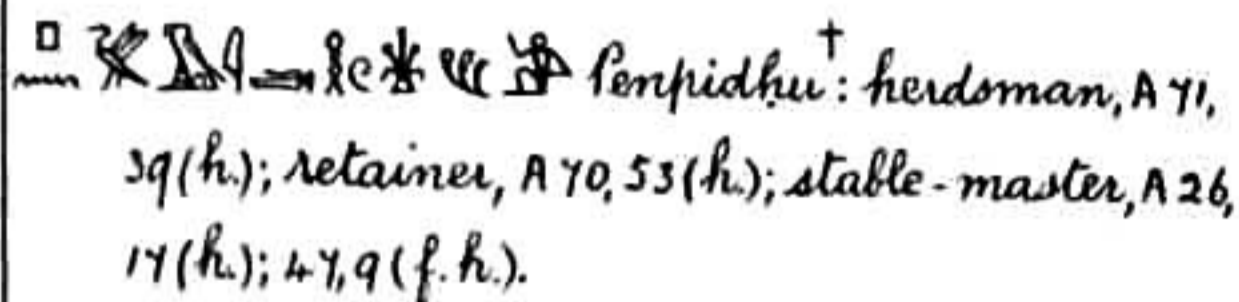 Penpidḥu†: herdsman, A 71,
39(h.); retainer, A 70, 53(h.); stable-master, A 26,
17(h.); 47, 9(f.h.).